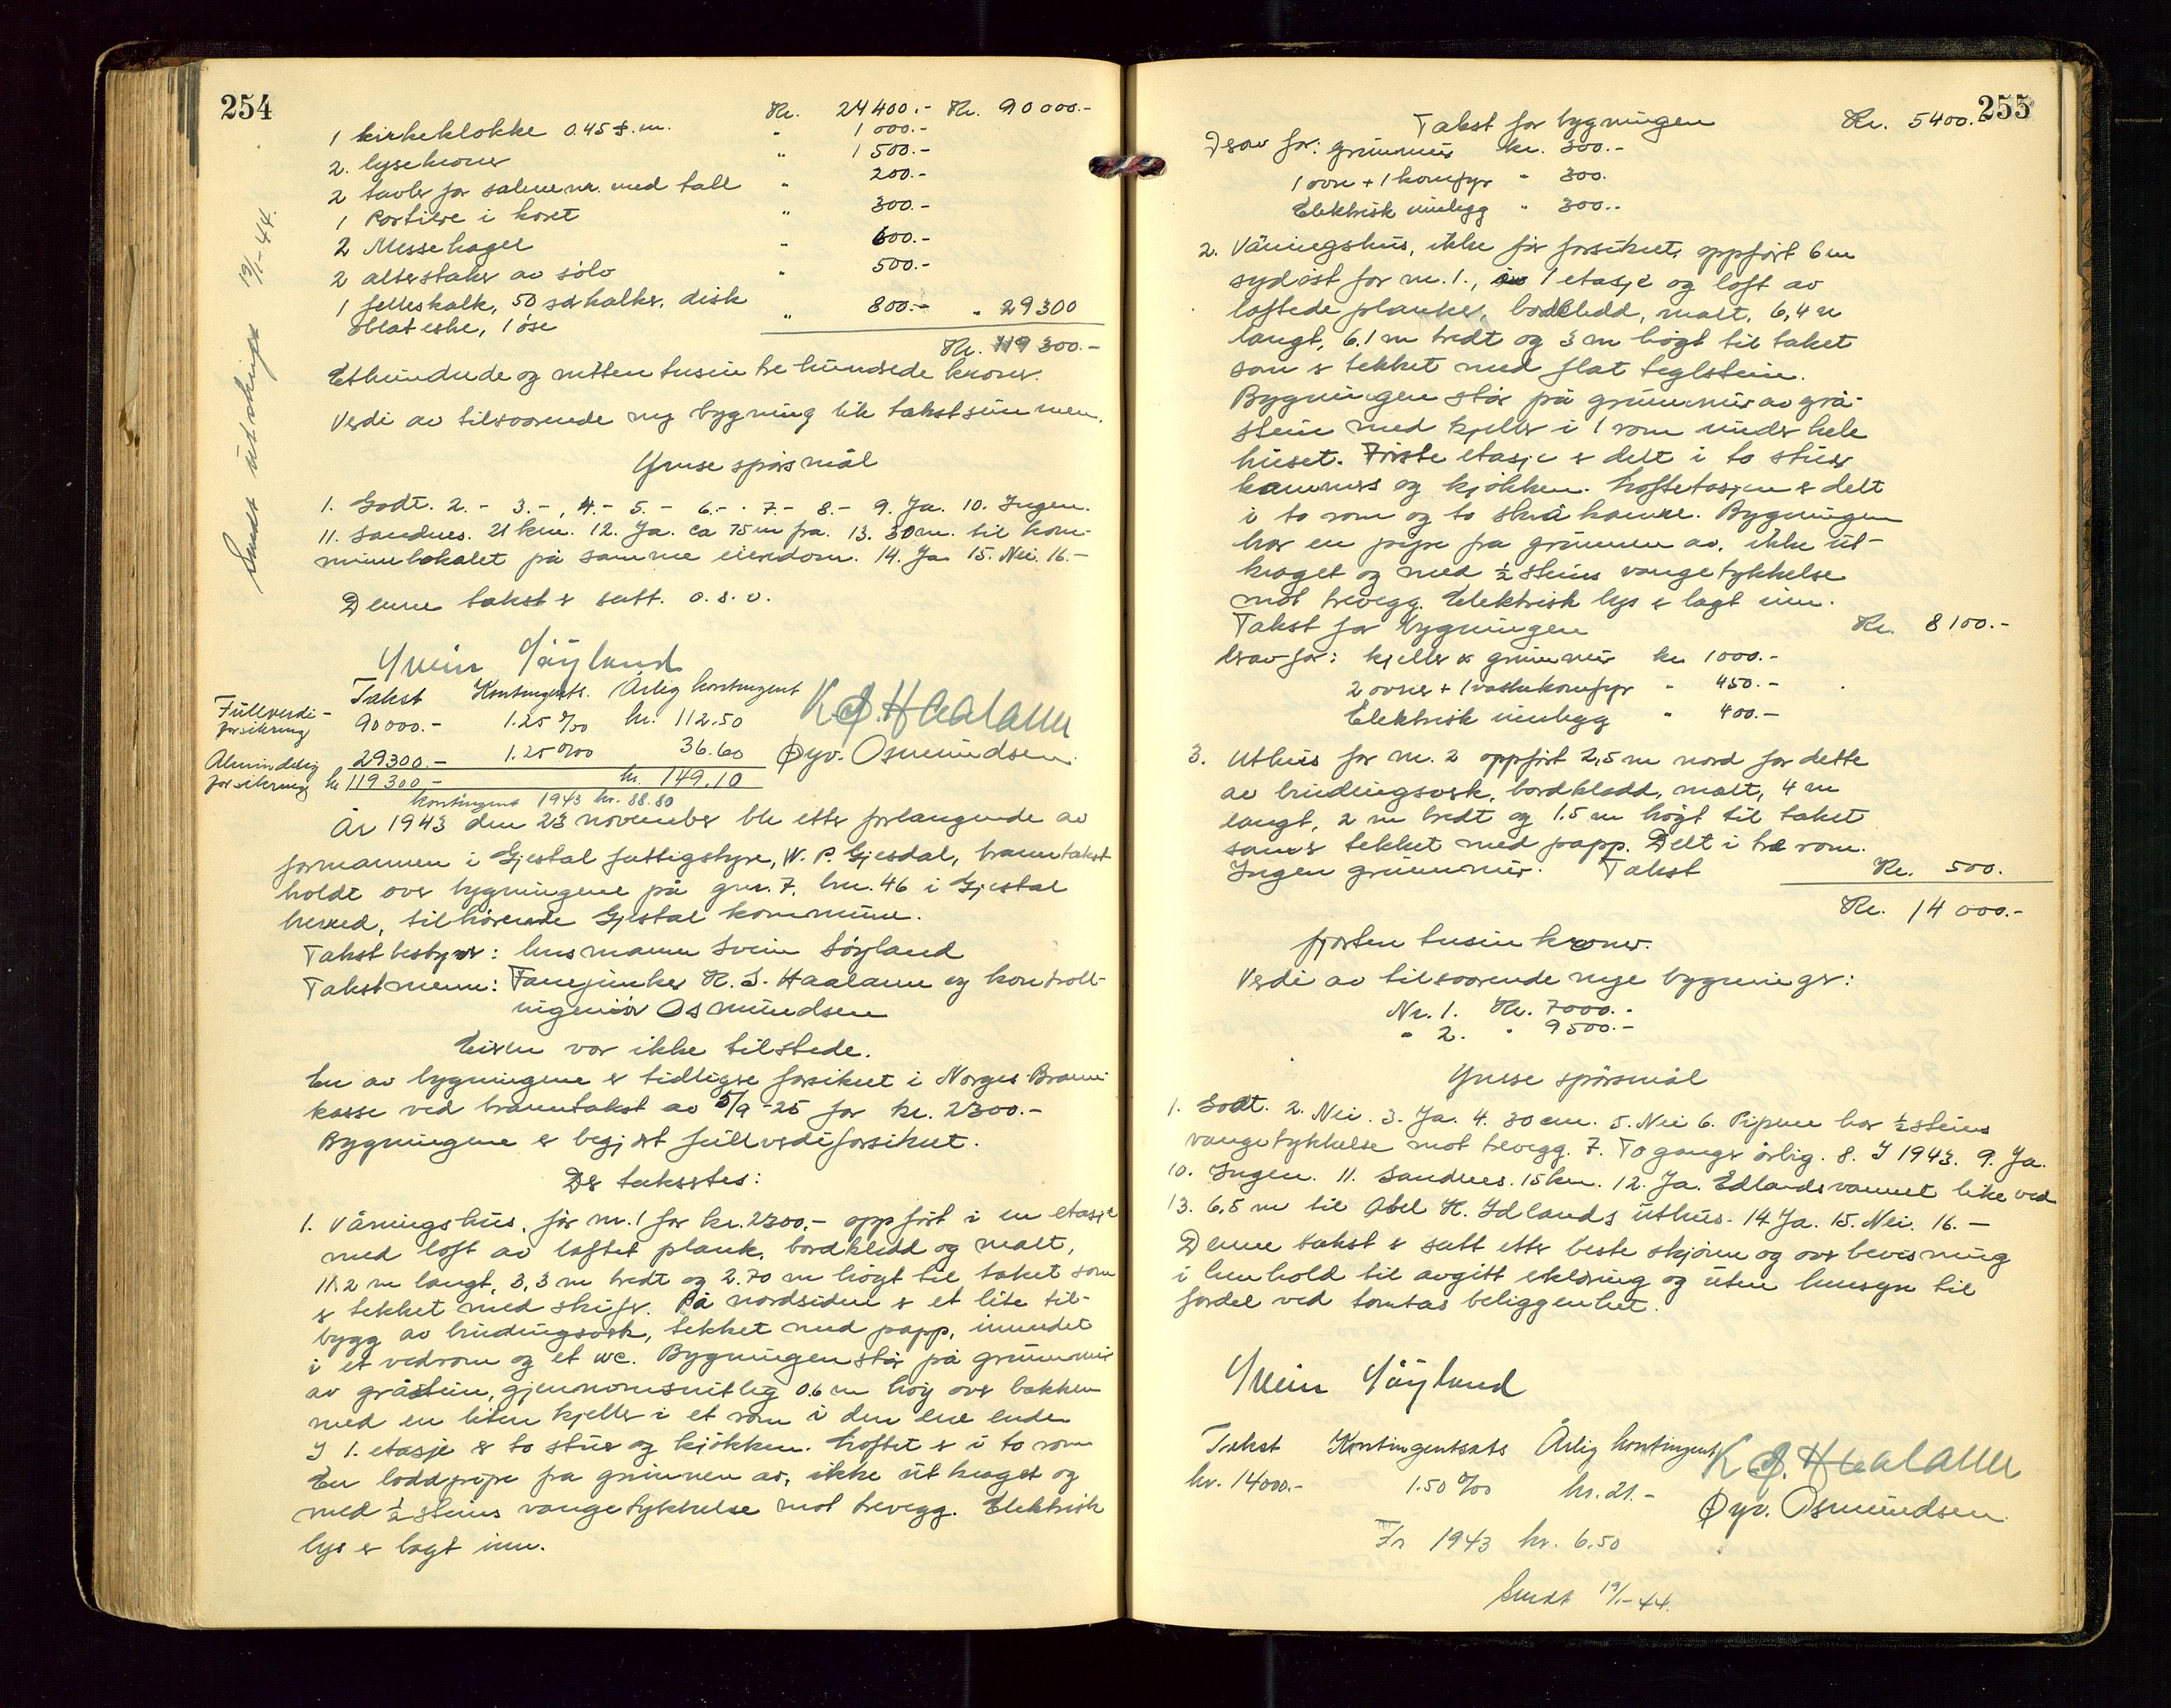 254
Kr. 24400.- Kr. 90000.-
1 kirkeklokke 0.45 f.m. " 1000.-
2. lysekroner " 1500.-
2 tavler for salmenr. med tall " 200.-
1 Portiere i koret " 300.-
2 Messehagel " 600.-
2 alterstaker av sølv " 500.-
1 felleskalk, 50 særkalker, disk
oblateske, 1 øse " 800.- " 29300
Kr. 119300.-
Ethundrede og nitten tusin tre hundrede kroner.
Verdi av tilsvarende ny bygning lik takstsummen.
Ymse spørsmål
1. Godt. 2.- 3.-, 4.- 5.- 6.- 7.- 8.- 9. Ja. 10. Ingen.
11. Sandnes. 21 km. 12. Ja. ca 75 m fra. 13. 30 m. til kom-
munelokalet på samme eiendom. 14. Ja 15. Nei. 16.-
Denne takst er satt. o.s.v.
Svein Søyland
Takst Kontingents. Årlig kontingent
Fullverdi-
forsikring 90000.- 1.25 o/oo kr. 112.50
K S. Haalann
Almindelig
forsikring 29300.- 1.25 o/oo 36.60
Øyv. Osmundsen
kr 119300.- kr. 149.10
kontingent 1943 kr. 88.80
Sendt utskrift 19/1-44.
År 1943 den 23 november ble etter forlangende av
formannen i Gjestal fattigstyre, W. P. Gjesdal, branntakst
holdt over bygningene på gnr. 7. bnr. 46 i Gjestal
herred, tilhørende Gjestal kommune.
Takstbestyrer: lensmann Svein Søyland
Takstmenn: Fanejunker K. S. Haalann og kontroll-
ingeniør Osmundsen
Eieren var ikke tilstede.
En av bygningene er tidligere forsikret i Norges Brann-
kasse ved branntakst av 5/9-25 for kr. 2300.-
Bygningene er begjært fullverdiforsikret.
Der taksertes:
1. Våningshus, før nr. 1 for kr. 2300,- oppført i en etasje
med loft av laftet plank, bordkledd og malt,
11,2 m langt, 3,3 m bredt og 2.70 m høgt til taket som
er tekket med skifer. På nordsiden er et lite til-
bygg av bindingsverk, tekket med papp, innredet
i et vedrom og et wc. Bygningen står på grunnmur
av gråstein, gjennomsnitlig 0.6 m høy over bakken
med en liten kjeller i et rom i den ene enden
I 1. etasje er to stuer og kjøkken. Loftet er i to rom
En loddpipe fra grunnen av, ikke utkraget og
med ½ steins vangetykkelse mot trevegg. Elektrisk
lys er lagt inn.
255
Takst for bygningen Kr. 5400.-
Derav for: grunnmur kr. 300.-
1 ovn + 1 komfyr " 300.
Elektrisk innlegg " 300..
2. Våningshus, ikke før forsikret, oppført 6 m
sydøst for nr. 1., 1 etasje og loft av
laftede planker, bordkledd, malt, 6,4 m
langt, 6.1 m bredt og 3 m høgt til taket
som er tekket med flat teglstein.
Bygningen står på grunnmur av grå-
stein med kjeller i 1 rom under hele
huset. Første etasje er delt i to stuer
kammers og kjøkken. Loftetasjen er delt
i to rom og to skråkammer. Bygningen
har en pipe fra grunnen av, ikke ut-
kraget og med ½ steins vangetykkelse
mot trevegg. Elektrisk lys er lagt inn.
Takst for bygningen Kr. 8100.-
derav for: kjeller & grunnmur kr 1000.-
2 ovner + 1 vaskekomfyr " 450.-
Elektrisk innlegg " 400.-
3. Uthus for nr. 2 oppført 2,5 m nord for dette
av bindingsverk, bordkledd, malt, 4 m
langt, 2 m bredt og 1.5 m høgt til taket
som er tekket med papp. Delt i tre rom.
Ingen grunnmur. Takst Kr. 500.
Kr. 14000.-
fjorten tusin kroner.
Verdi av tilsvarende nye bygninger:
Nr. 1. Kr. 7000.-
" 2. " 9500.-
Ymse spørsmål
1. Godt. 2. Nei. 3. Ja. 4. 30 cm. 5. Nei 6. Pipene har ½ steins
vangetykkelse mot trevegg. 7. To ganger årlig. 8. I 1943. 9. Ja.
10. Ingen. 11. Sandnes. 15 km. 12. Ja. Edlandsvannet like ved
13. 6,5 m til Abel K. Edlands uthus. 14 Ja. 15. Nei. 16.-
Denne takst er satt etter beste skjønn og overbevisning
i henhold til avgitt erklæring og uten hensyn til
fordel ved tomtas beliggenhet.
Svein Søyland
Takst Kontingentsats Årlig kontingent
K S. Haalann
kr. 14000.- 1.50 o/oo kr. 21.-
Øyv. Osmundsen
For 1943 kr. 6.50
Sendt 19/1-44.